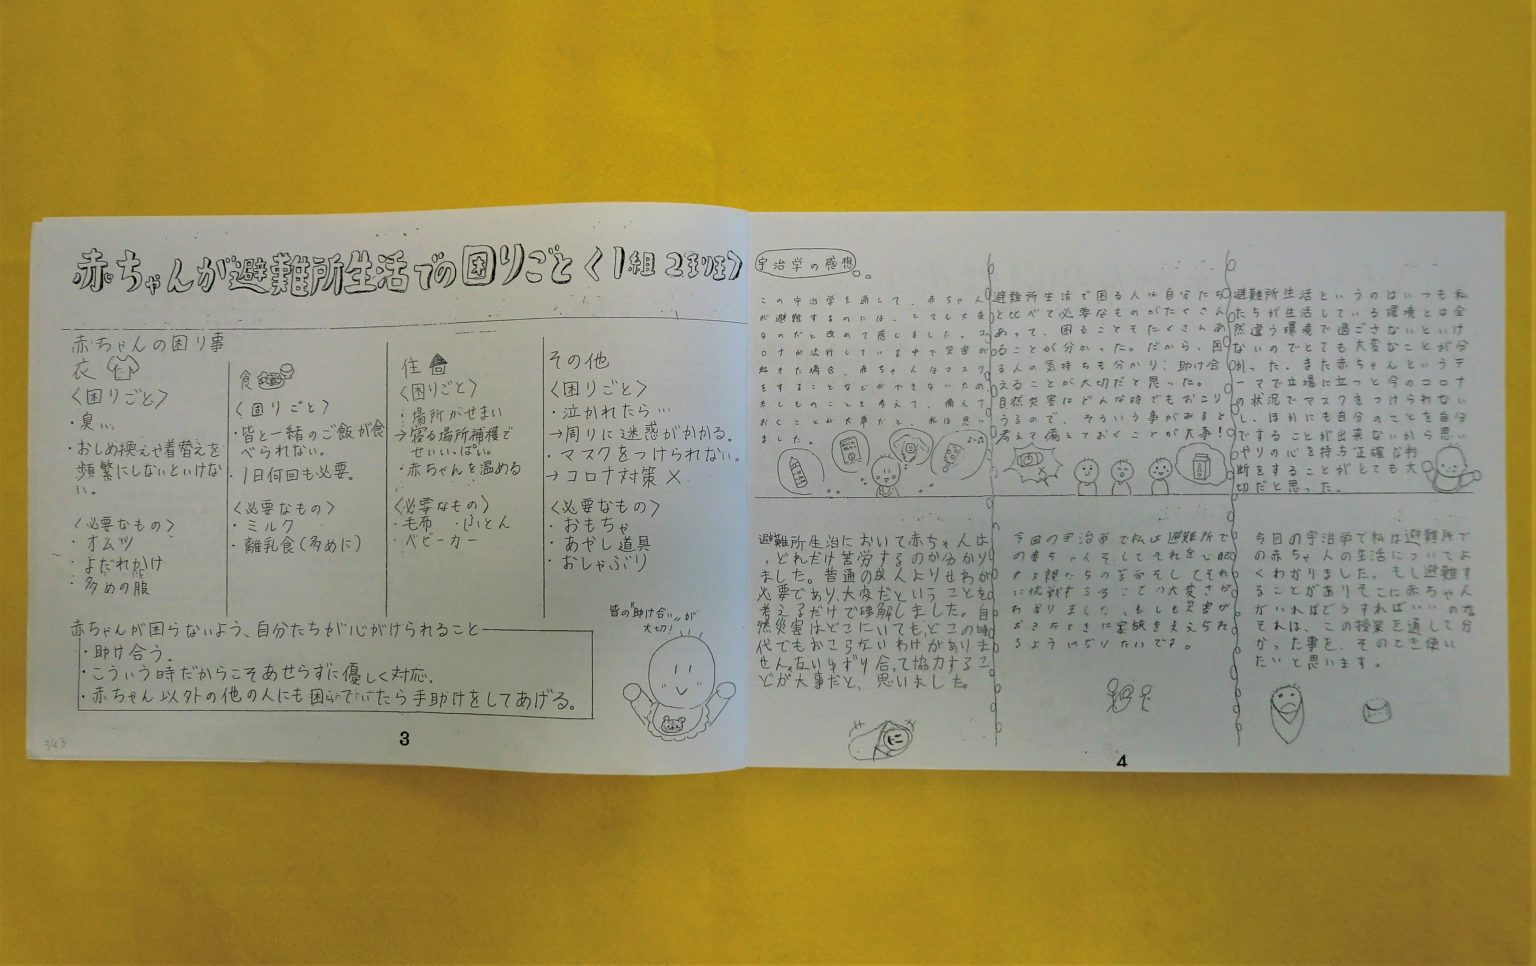 赤ちゃんが避難所生活での困りごと<1組2班>
赤ちゃんの困り事
衣
<困りごと>
・臭い、
・おしめ換えや着替えを
頻繁にしないといけな
い。
<必要なもの>
・オムツ
・よだれかけ
・多めの服
食
<困りごと>
・皆と一緒のご飯が食
べられない。
・1日何回も必要。
<必要なもの>
・ミルク
・離乳食(多めに)
住
<困りごと>
・場所がせまい
→寝る場所補穫で
せいいっぱい。
・赤ちゃんを温める
<必要なもの>
・毛布 ・ふとん
・ベビーカー
その他
<困りごと>
・泣かれたら…
→周りに迷惑がかかる。
・マスクをつけられない。
→コロナ対策×
<必要なもの>
・おもちゃ
・あやし道具
・おしゃぶり
赤ちゃんが困らないよう、自分たちが心がけられること
・助け合う。
・こういう時だからこそあせらずに優しく対応.
・赤ちゃん以外の他の人にも困っていたら手助けをしてあげる。
皆の"助け合い"が
大切!
343
3
宇治学の感想
この宇治学を通して、赤ちゃん
が避難するのには、とても大変
なのだと改めて感じました。コ
ロナが流行している中で災害が
起きた場合、赤ちゃんはマスク
をすることなどができないため
もしものことを考えて、備えて
おくことが大事だと、私は思い
ました。
避難所生活で困る人は自分たち
と比べて必要なものがたくさん
あって、困ることもたくさんあ
ることが分かった。だから、困
る人の気持ちも分かり、助け合
えることが大切だと思った。
自然災害はどんな時でもおこり
うるので、そういう事があると
考えて備えておくことが大事!
避難所生活というのはいつも私
たちが生活している環境とは全
然違う環境で過ごさないといけ
ないのでとても大変なことが分
かった。また赤ちゃんというテ
ーマで立場に立つと今のコロナ
の状況でマスクをつけられない
し、ほかにも自分のことを自分
ですることが出来ないから思い
やりの心を持ち正確な判
断をすることがとても大
切だと思った。
避難所生活において赤ちゃんは
、どれだけ苦労するのか分かり
ました。普通の人よりせわが
必要であり、大変だということを
考えるだけで理解しました。自
然災害はどこにいても、どこの時
代でもおこらないわけがありま
せん。ないゆずり合って協力するこ
とが大事だと、思いました。
今回の宇治学で私は避難所で
の赤ちゃんそしてそれを心配
する親たちの苦労そしてそれ
に挑戦することの大変さが
わかりました、もしも災害が
おきたときに家族をささえられ
るようになりたいです。
今日の宇治学で私は避難所で
の赤ちゃんの生活についてよ
くわかりました。もし避難す
ることがありそこに赤ちゃん
がいればどうすればいいのか
それは、この授業を通して分
かった事を、そのとき使い
たいと思います。
4